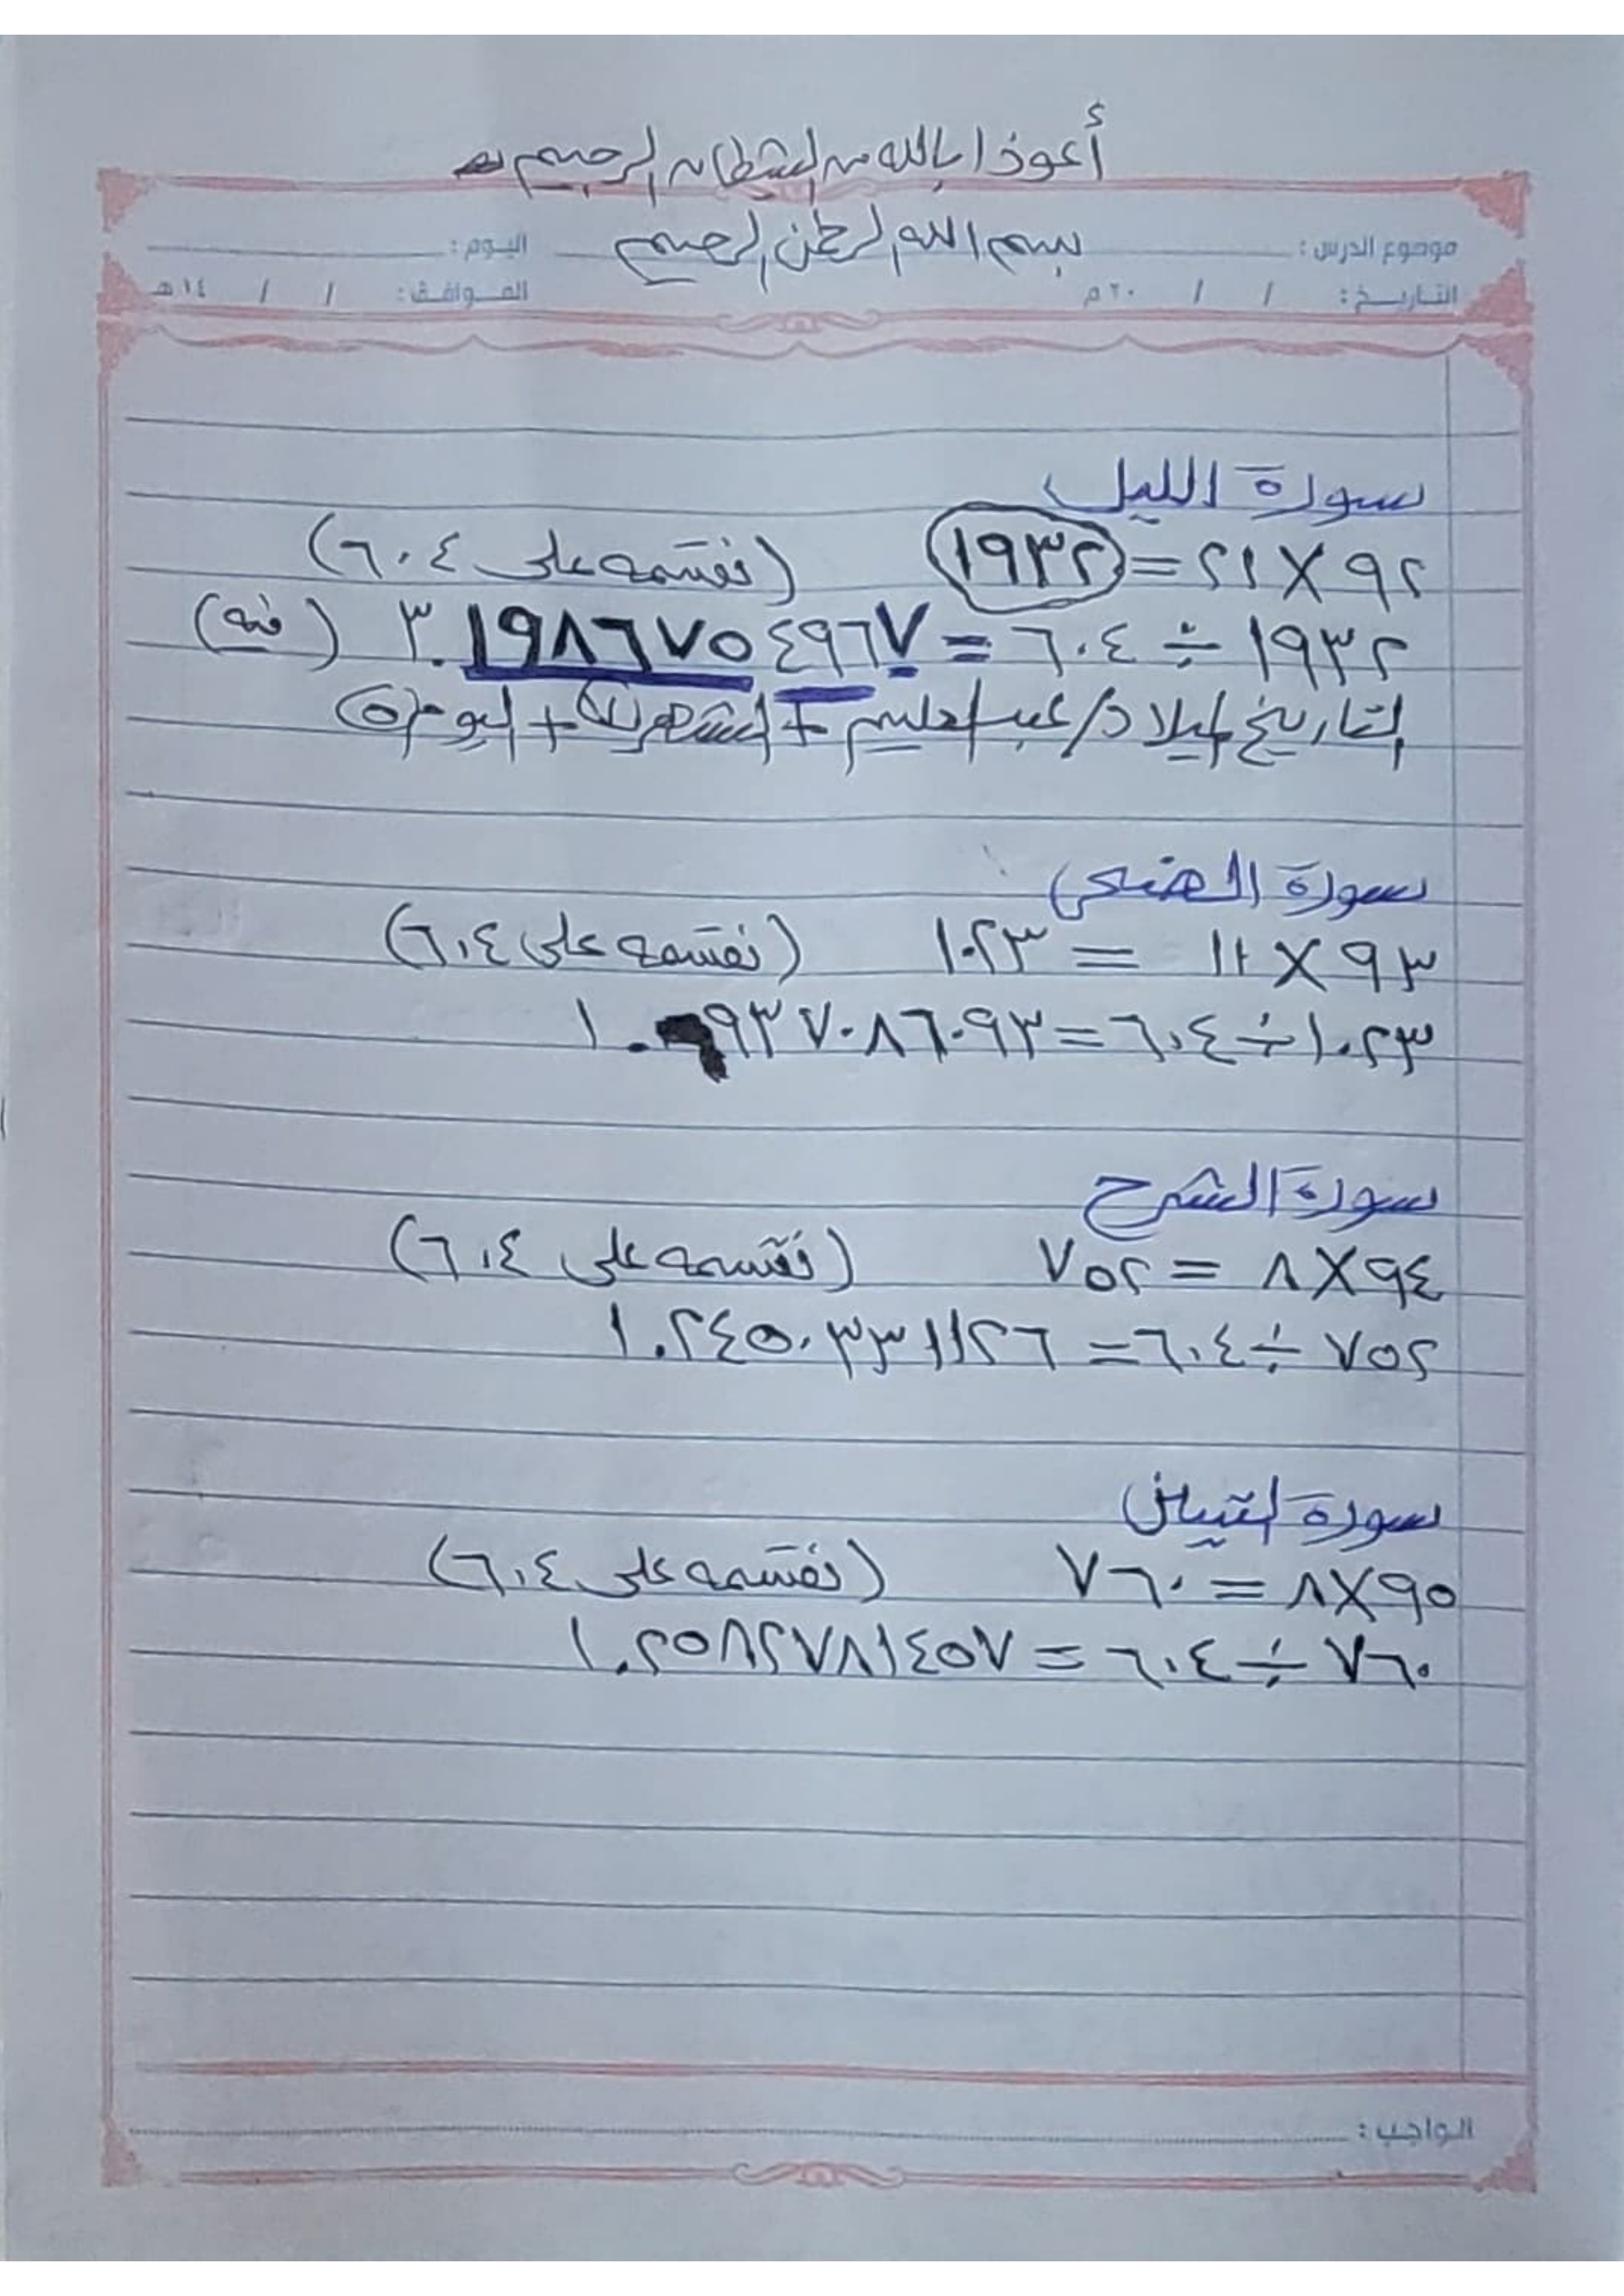 أعوذ بالله من الشيطان الرجيم
بسم الله الرحمن الرحيم
موضوع الدرس : اليوم :
التاريخ : / / ٢٠م الموافق : / / ١٤هـ
سورة الليل
٩٢ × ٢١ = ١٩٣٢ (نقسمه على ٦٠٤)
١٩٣٢ ÷ ٦٠٤ = ٣.١٩٨٦٧٥٤٩٦٧ (فيه)
التاريخ لميلاد / عبد الحليم + الشهر + اليوم (٥)
سورة الضحى
٩٣ × ١١ = ١٠٢٣ (نقسمه على ٦٠٤)
١٠٢٣ ÷ ٦٠٤ = ١.٦٩٣٧٠٨٦٠٩٣
سورة الشرح
٩٤ × ٨ = ٧٥٢ (نقسمه على ٦٠٤)
٧٥٢ ÷ ٦٠٤ = ١.٢٤٥٠٣٣١١٢٦
سورة التين
٩٥ × ٨ = ٧٦٠ (نقسمه على ٦٠٤)
٧٦٠ ÷ ٦٠٤ = ١.٢٥٨٢٧٨١٤٥٧
الواجب :